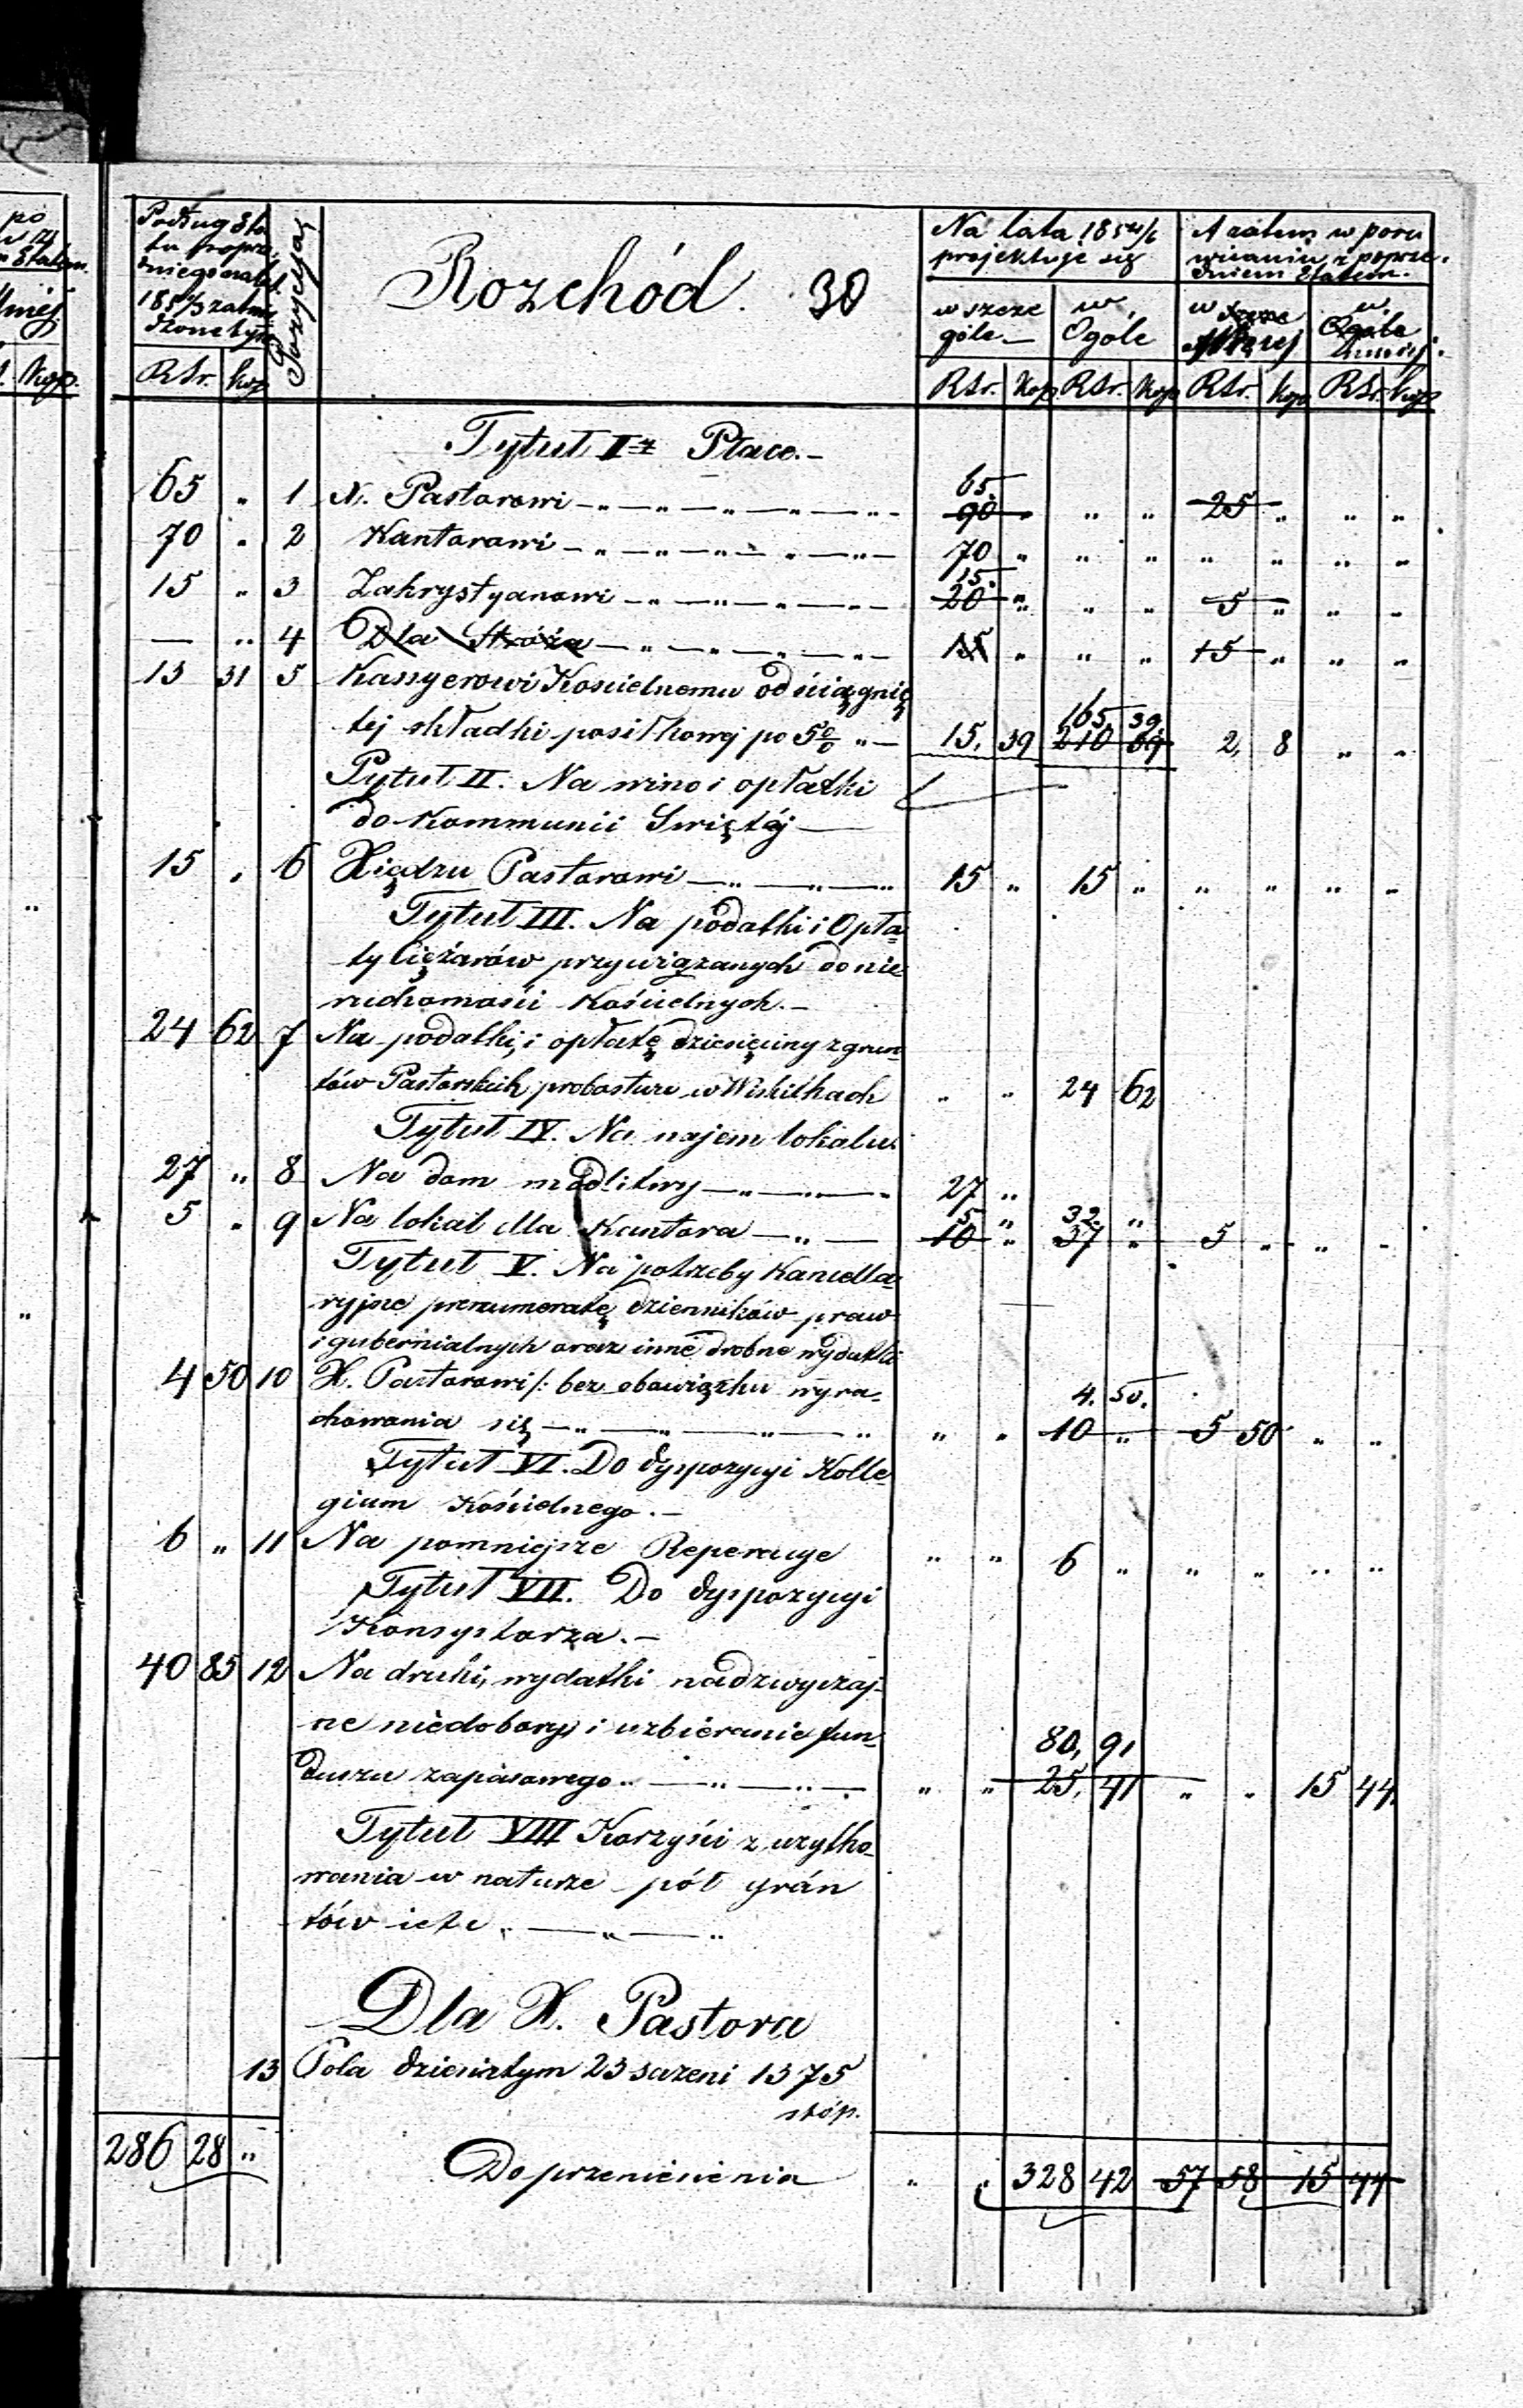 po
Statem.
Kop.
Podług Eta
tu poprze
dniego na lat.
185 1/3 zatwier
dzonetyż
Pozycyja
Rozchód. 30
Na lata 185 4/6
projektuje się
A zatem w poru
wnaniu z poprze
dniem Etatem.
w szcze
góle. —
w
Ogóle
w Szcze
Więcej
w
Ogóle
Mniej.
RSr. Kop RSr. Kop RSr. Kop RSr. Kop RSr. Kop
Tytuł I Płace. —
65 „ 1 X. Pastorowi — „ — „ — „ — „ — 65. 90 „ „ „ 25 „ „ „
70 „ 2 Kantorowi — „ — „ — „ — „ — 70 „ „ „ „ „ „ „
15 „ 3 Zakrystyanowi — „ — „ — „ — 15. 20 „ „ „ 5 „ „ „
— „ 4 Dla Stróża — „ — „ — „ — 15 „ „ „ 15 „ „ „
13 31 5 Kassyerowi Kościelnemu od ściągnię
tej składki posiłkowej po 5% „ — 15. 39 165. 39 210 39 2, 8 „ „
Tytuł II. Na wino i opłatki
do Kommunii Swiętéj —
15 „ 6 Xiędzu Pastorowi — „ — „ — 15 „ 15 „ „ „ „ „
Tytuł III. Na podatki i Opła-
ty Ciężarów przywiązanych do nie
ruchomości Kościelnych. —
24 62 7 Na podatki, i opłatę dziesięciny z grun-
tów Pastorskich probostwu w Wiskitkach „ „ 24 62
Tytuł IV. Na najem lokalu.
27 „ 8 Na dom modlitwy — „ — „ 27 „
5 „ 9 Na lokal dla Kantora — „ — 5 „ 10 „ 32. „ 37 „ 5 „ „ „
Tytuł V. Na potrzeby Kancella-
ryjne prenumeratę dzienników praw
i gubernialnych oraz inne drobne wydatki
4 50 10 X. Pastorowi /: bez obowiązku wyra-
chowania się — „ — „ — „ — „ „ „ 4. 50. 10 „ 5 50 „ „
Tytuł VI. Do dyspozycyi Kolle-
gium Kościelnego. —
6 „ 11 Na pomniejsze Reperacye „ „ 6 „ „ „ „ „
Tytuł VII. Do dyspozycyi
Konsystorza. —
40 85 12 Na druki, wydatki nadzwyczaj-
ne niedobory i uzbieranie fun-
duszu zapasowego „ — „ — „ — „ „ 80, 91 25, 41 „ „ 15 44.
Tytuł VIII Korzyści z użytko-
wania w naturze pól grun
tów iele „ — „ — „
Dla X. Pastora
13 Pola dziesiatyn 23 sazeni 1375
stóp.
286 28 „ Do przeniesienia „ „ 328 42 57 58 15 44